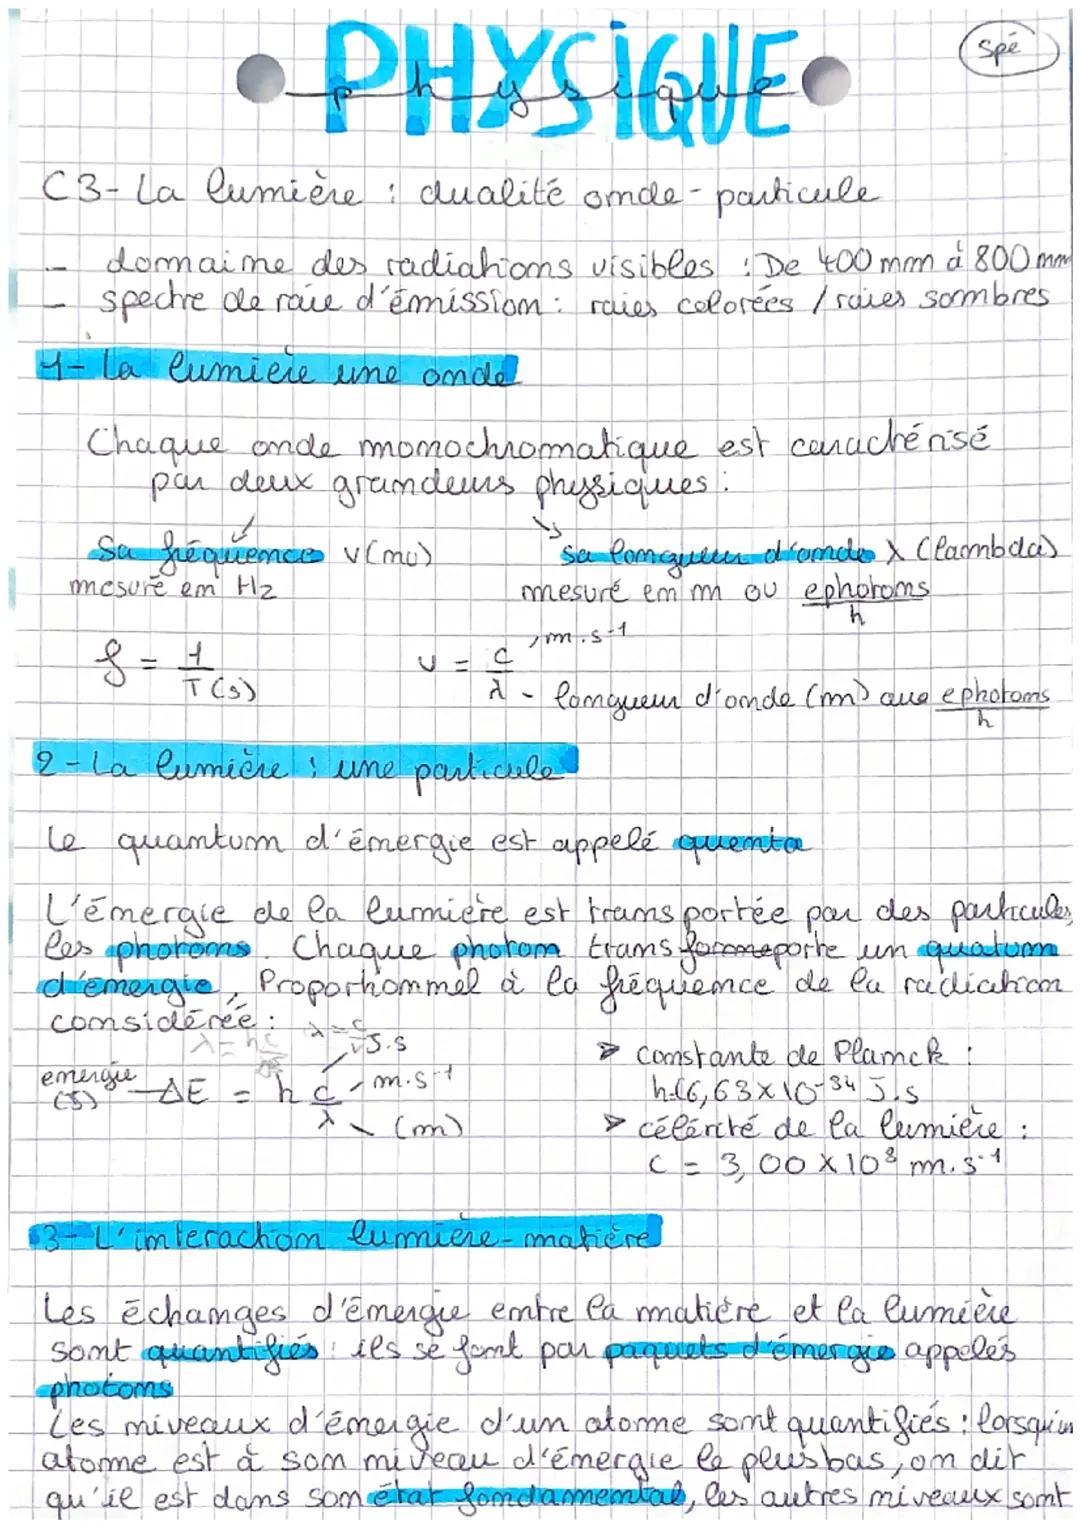 PHYSIQUE
physique
Spé
C3- La lumière : dualité onde - particule
- domaine des radiations visibles : De 400 nm à 800 nm
- spectre de raie d'émission : raies colorées / raies sombres
1- La lumière une onde
Chaque onde monochromatique est caractérisé
par deux grandeurs physiques :
sa fréquence ν (nu)
mesuré en Hz
sa longueur d'onde λ (lambda)
mesuré en m ou ephotons/h
f = 1/T(s)
ν = c/λ
, m.s-1
- longueur d'onde (m) ephotons/h
2- La lumière : une particule
Le quantum d'énergie est appelé quenta
L'énergie de la lumière est transportée par des particules,
les photons. Chaque photon transformeporte un quatum
d'énergie, Proportionnel à la fréquence de la radiation
considérée :
J.s
energie (J) ΔE = h c/λ
m.s-1
(m)
➤ constante de Planck :
h=(6,63×10-34 J.s
➤ célérité de la lumière :
c = 3,00×10⁸ m.s-1
3- L'interaction lumière-matière
Les échanges d'énergie entre la matière et la lumière
sont quantifiés : ils se font par paquets d'énergie appelés
photons
Les niveaux d'énergie d'un atome sont quantifiés : lorsqu'un
atome est à son niveau d'énergie le plus bas, on dit
qu'il est dans son état fondamental, les autres niveaux sont